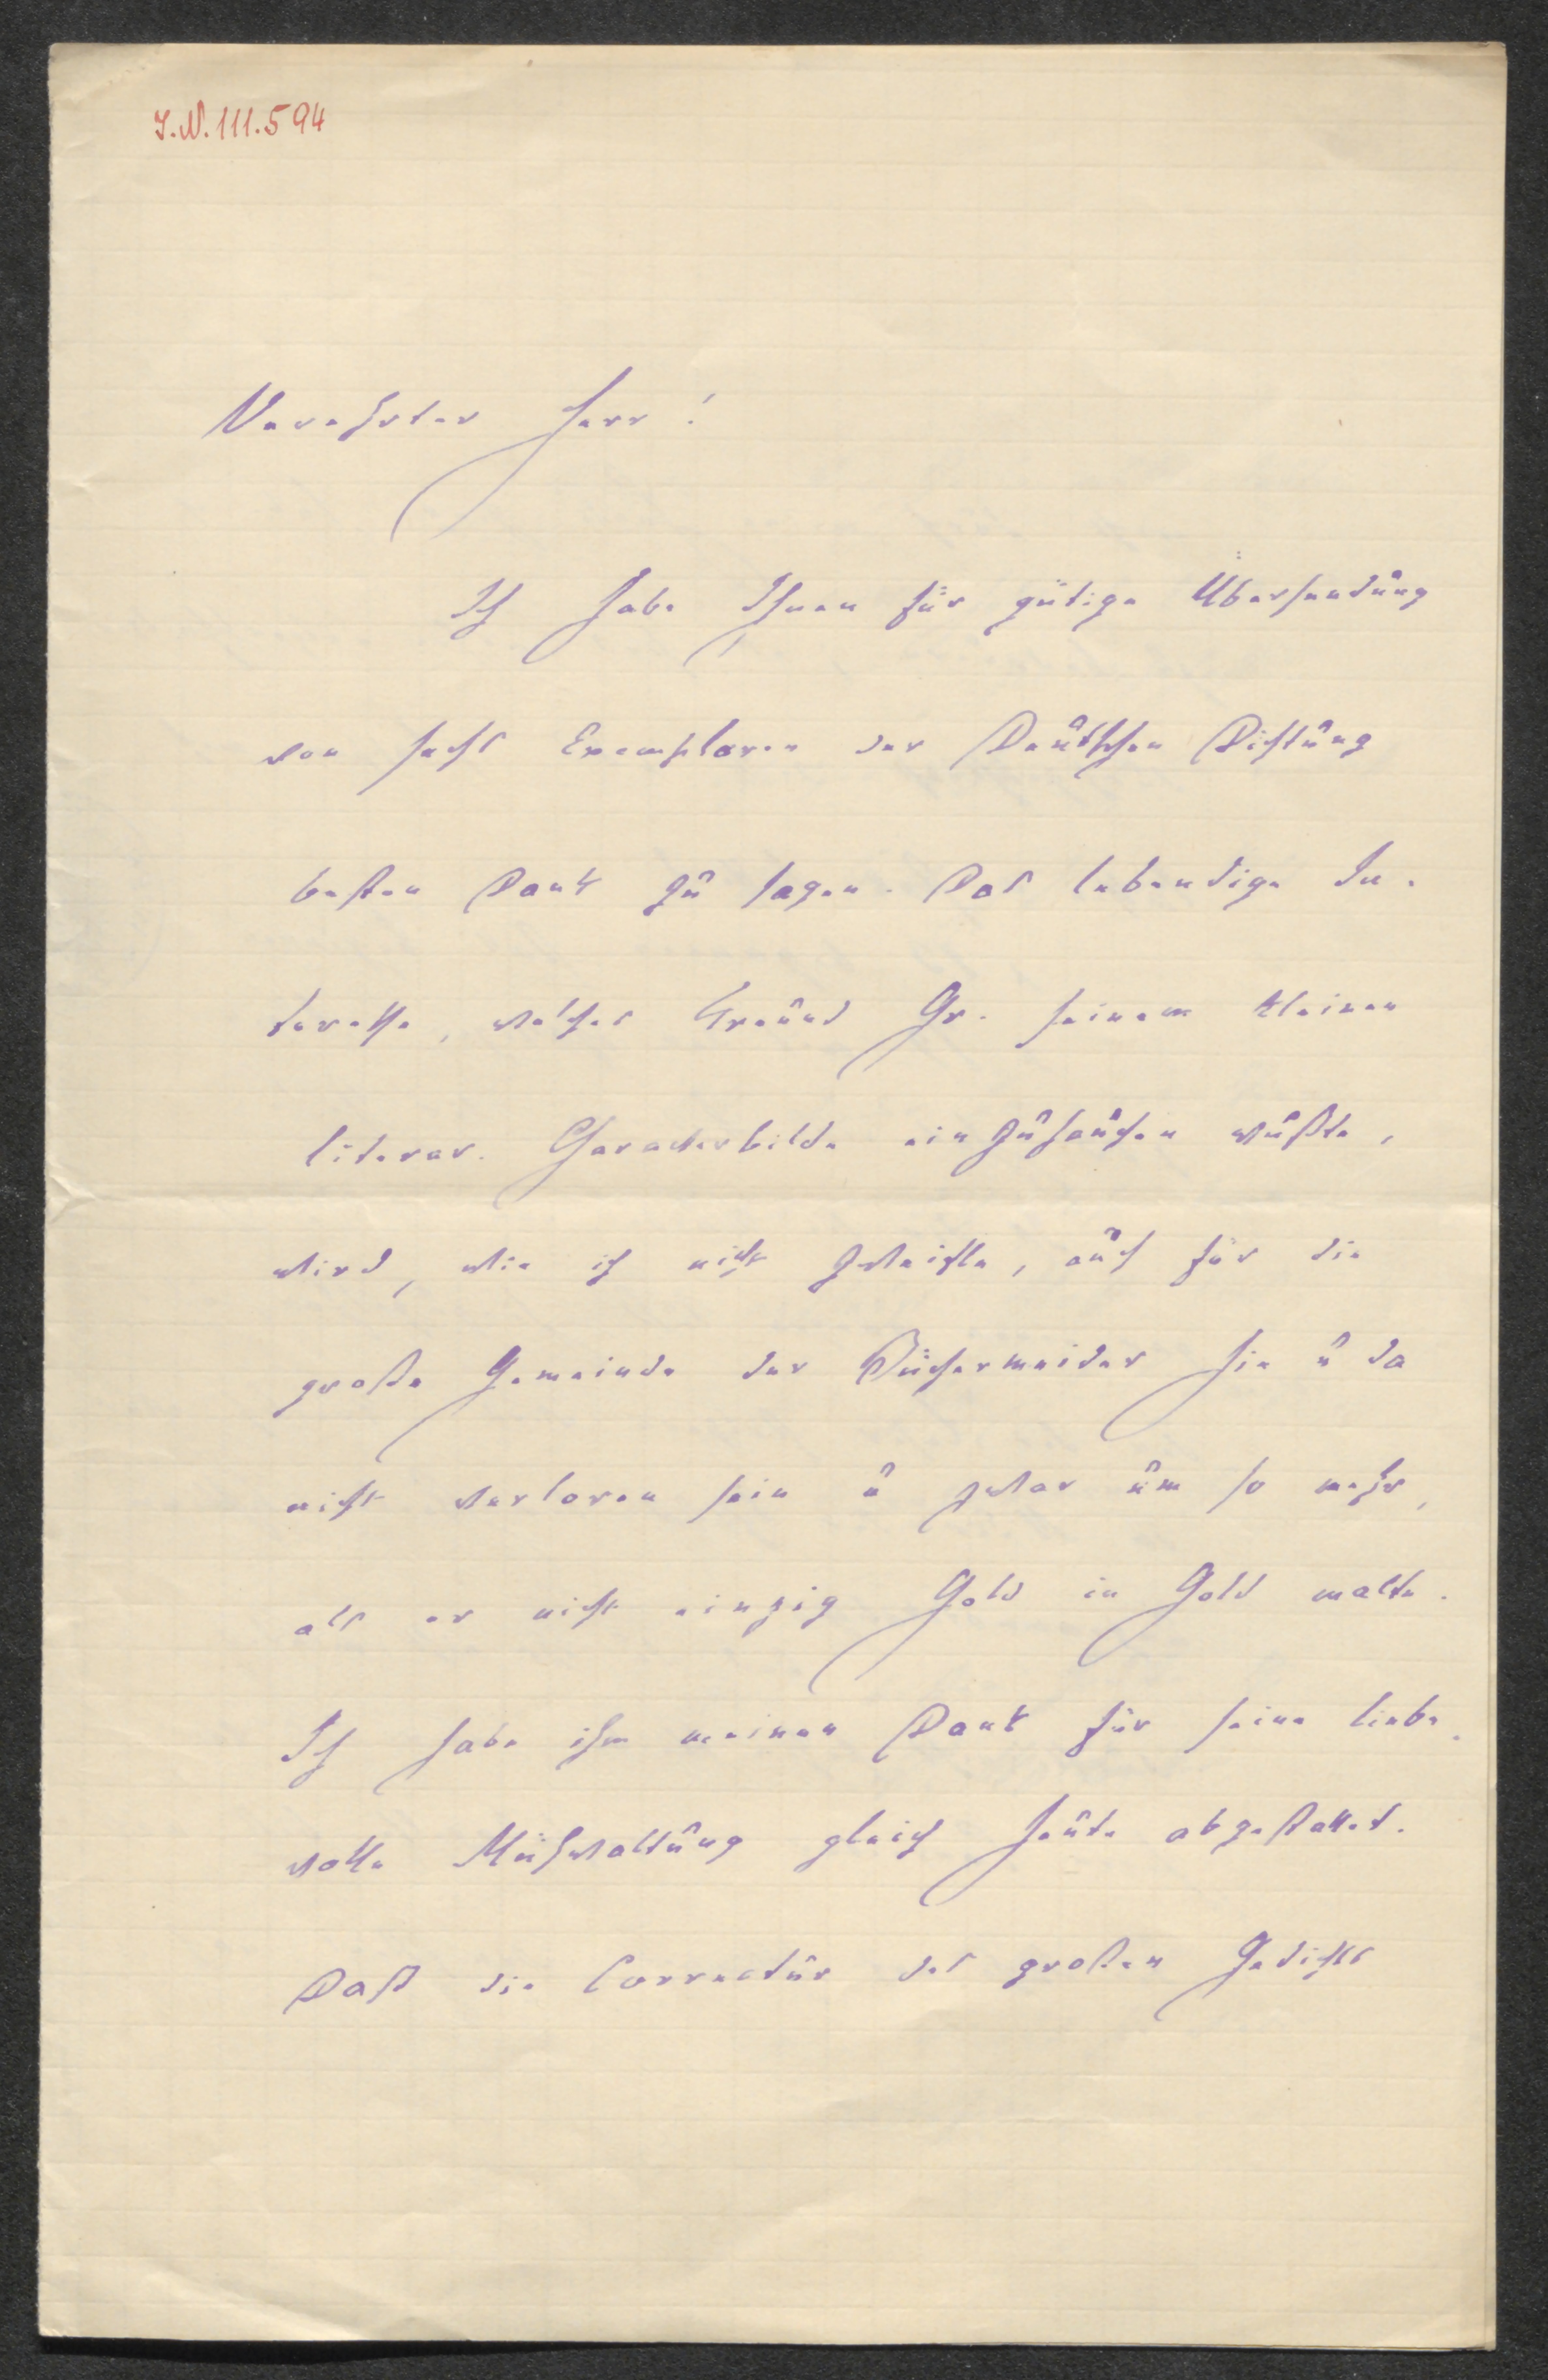 I.N. 111.594
Verehrter Herr!
Ich habe Ihnen für gütige Übersendung
von sechs Exemplaren der Deutschen Dichtung
besten Dank zu sagen. Das lebendige In-
teresse, welches Freund Gr. seinem kleinen
literar. Characterbilde einzuhauchen wußte,
wird, wie ich nicht zweifle, auch für die
große Gemeinde der Büchermeider hie u da
nicht verloren sein u zwar um so mehr,
als er nicht einzig Gold in Gold malte.
Ich habe ihm meinen Dank für seine liebe-
volle Mühwaltung gleich heute abgestattet.
Daß die Correctur des großen Gedichts